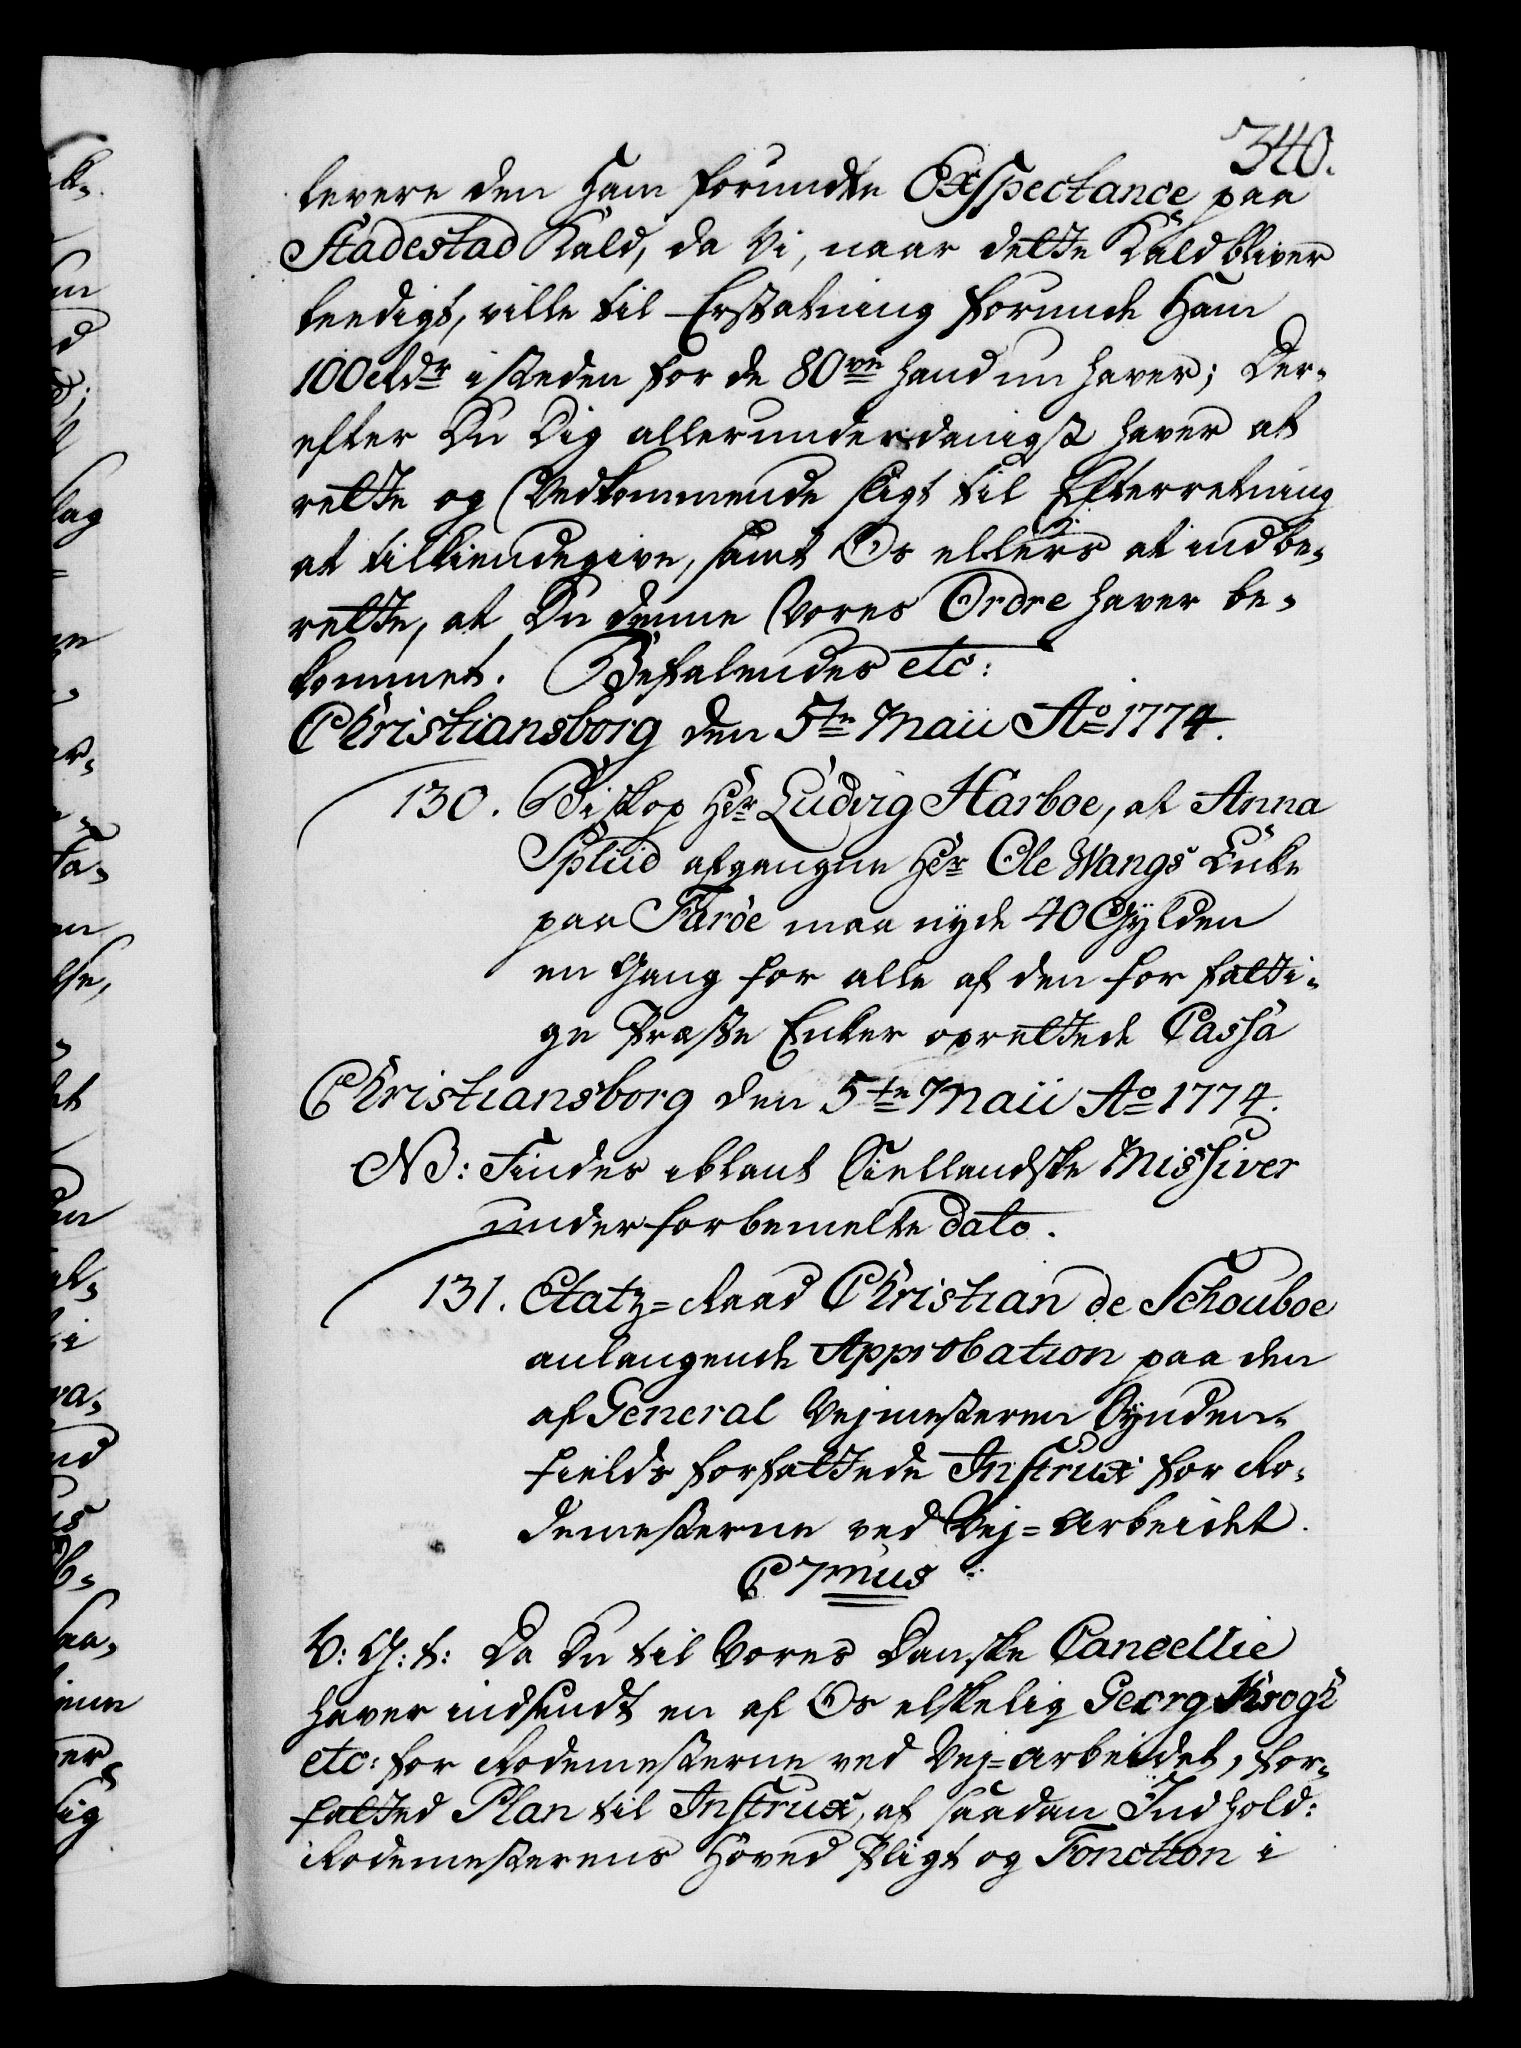 340.
levere den Ham forundte Exspectance paa
Stadestad Kald, da Vi, naar dette Kald bliver
leedigt, ville til Erstatning forunde Ham
100 Rdr i steden for de 80ve hand nu haver; Der-
efter Du Dig allerunderdanigst haver at
rette og Vedkommende sligt til Efterretning
at tilkiendegive, samt Os ellers at indbe-
rette, at Du denne Vores Ordre haver be-
kommet. Befalendes etc:
Christiansborg den 5te Maii Ao 1774.
130. Biskop Hr Ludvig Harboe, at Anna
Splud afgangne Hr Ole Wangs Enke
paa Farøe maa nyde 40 Gylden
en Gang for alle af den for fatti-
ge Præste Enker oprettede Cassa
Christiansborg den 5te Maii Ao 1774.
NB: Findes iblant Siellandske Missiver
under forbemelte Dato.
131. Etatz-Raad Christian de Schouboe
anlangende Approbation paa den
af General Vejmesteren Synden-
fields forfattede Instrux for Ro-
demesterne ved Vej-Arbeidet.
C 7mus
V: G: t: Da Du til Vores Danske Cancellie
haver indsendt en af Os elskelig Georg Krogh
etc: for Rodemesterne ved Vej-arbeidet, for-
fatted Plan til Instrux, af saadan Indhold:
Rodemesterens Hoved Pligt og Fonction i